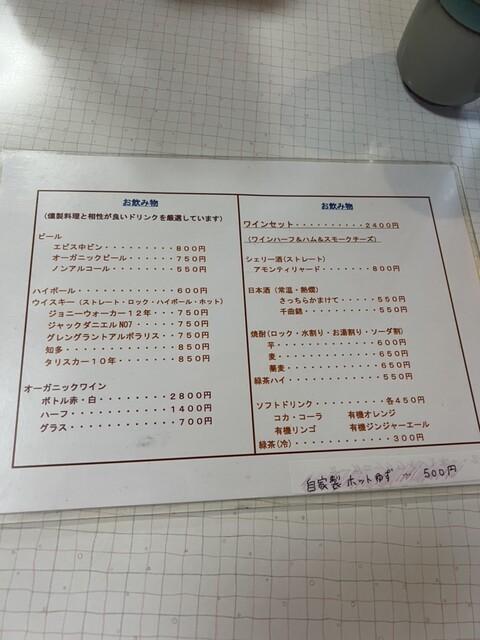 お飲み物
(燻製料理と相性が良いドリンクを厳選しています)
ビール
エビス中ビン・・・・・・・・・800円
オーガニックビール・・・・・・750円
ノンアルコール・・・・・・・・550円
ハイボール・・・・・・・・・・・600円
ウイスキー(ストレート・ロック・ハイボール・ホット)
ジョニーウォーカー12年・・・750円
ジャックダニエルNO7・・・・750円
グレングラントアルボラリス・・750円
知多・・・・・・・・・・・・・850円
タリスカー10年・・・・・・・850円
オーガニックワイン
ボトル赤・白・・・・・・・・・2800円
ハーフ・・・・・・・・・・・・1400円
グラス・・・・・・・・・・・・700円
お飲み物
ワインセット・・・・・・・・・・2400円
(ワインハーフ&ハム&スモークチーズ)
シェリー酒(ストレート)
アモンティリャード・・・・・・・800円
日本酒(常温・熱燗)
さっちらかまけて・・・・・550円
千曲錦・・・・・・・・・・550円
焼酎(ロック・水割り・お湯割り・ソーダ割)
芋・・・・・・・・・・・・600円
麦・・・・・・・・・・・・650円
蕎麦・・・・・・・・・・・650円
緑茶ハイ・・・・・・・・・・・・550円
ソフトドリンク・・・・・・・・各450円
コカ・コーラ 有機オレンジ
有機リンゴ 有機ジンジャーエール
緑茶(冷)・・・・・・・・・・・300円
自家製ホットゆず 〜 500円